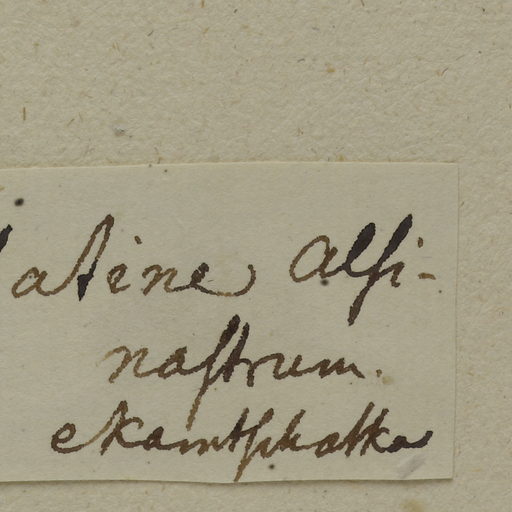 latine Alsi-
nastrum.
e Kamtschatka